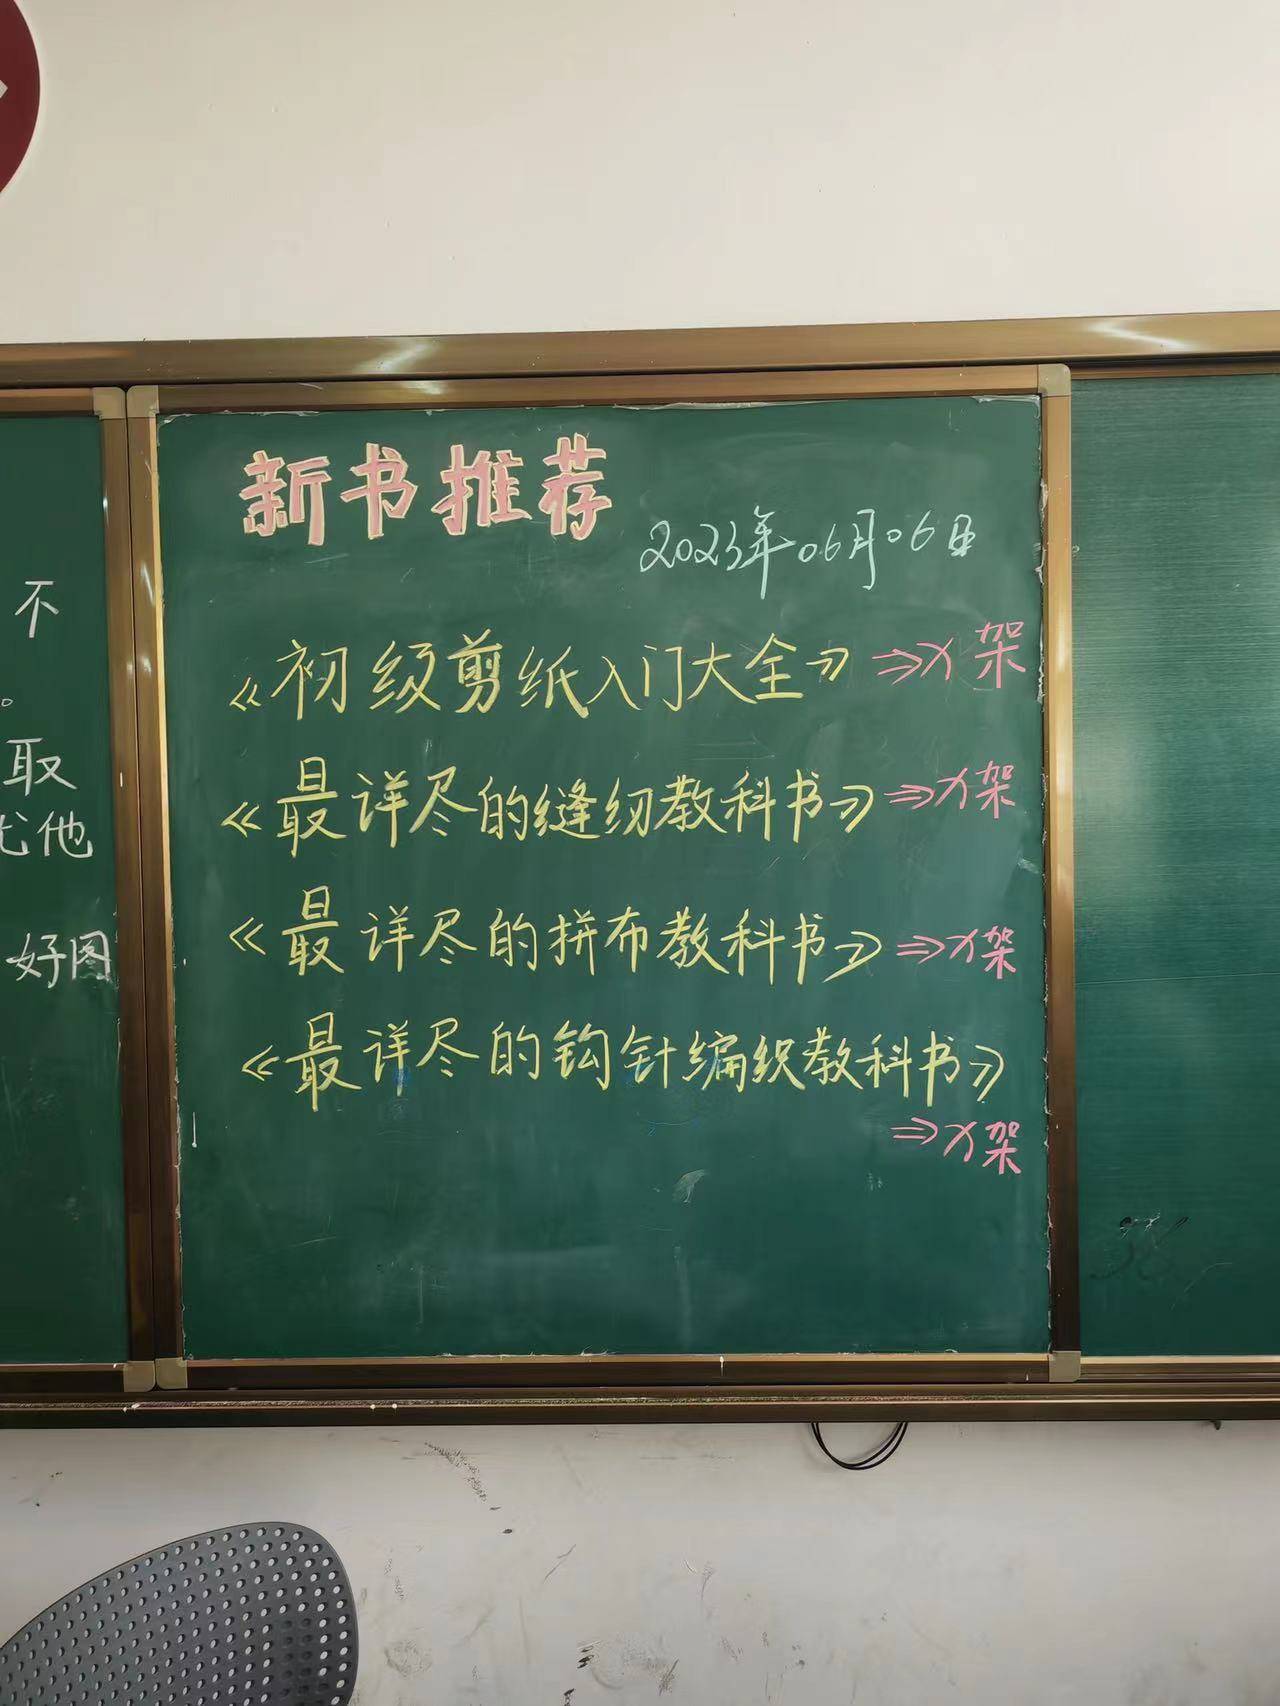 新书推荐
2023年06月06日
《初级剪纸入门大全》⇒X架
《最详尽的缝纫教科书》⇒X架
《最详尽的拼布教科书》⇒X架
《最详尽的钩针编织教科书》
⇒X架
不
。
取
他
好图